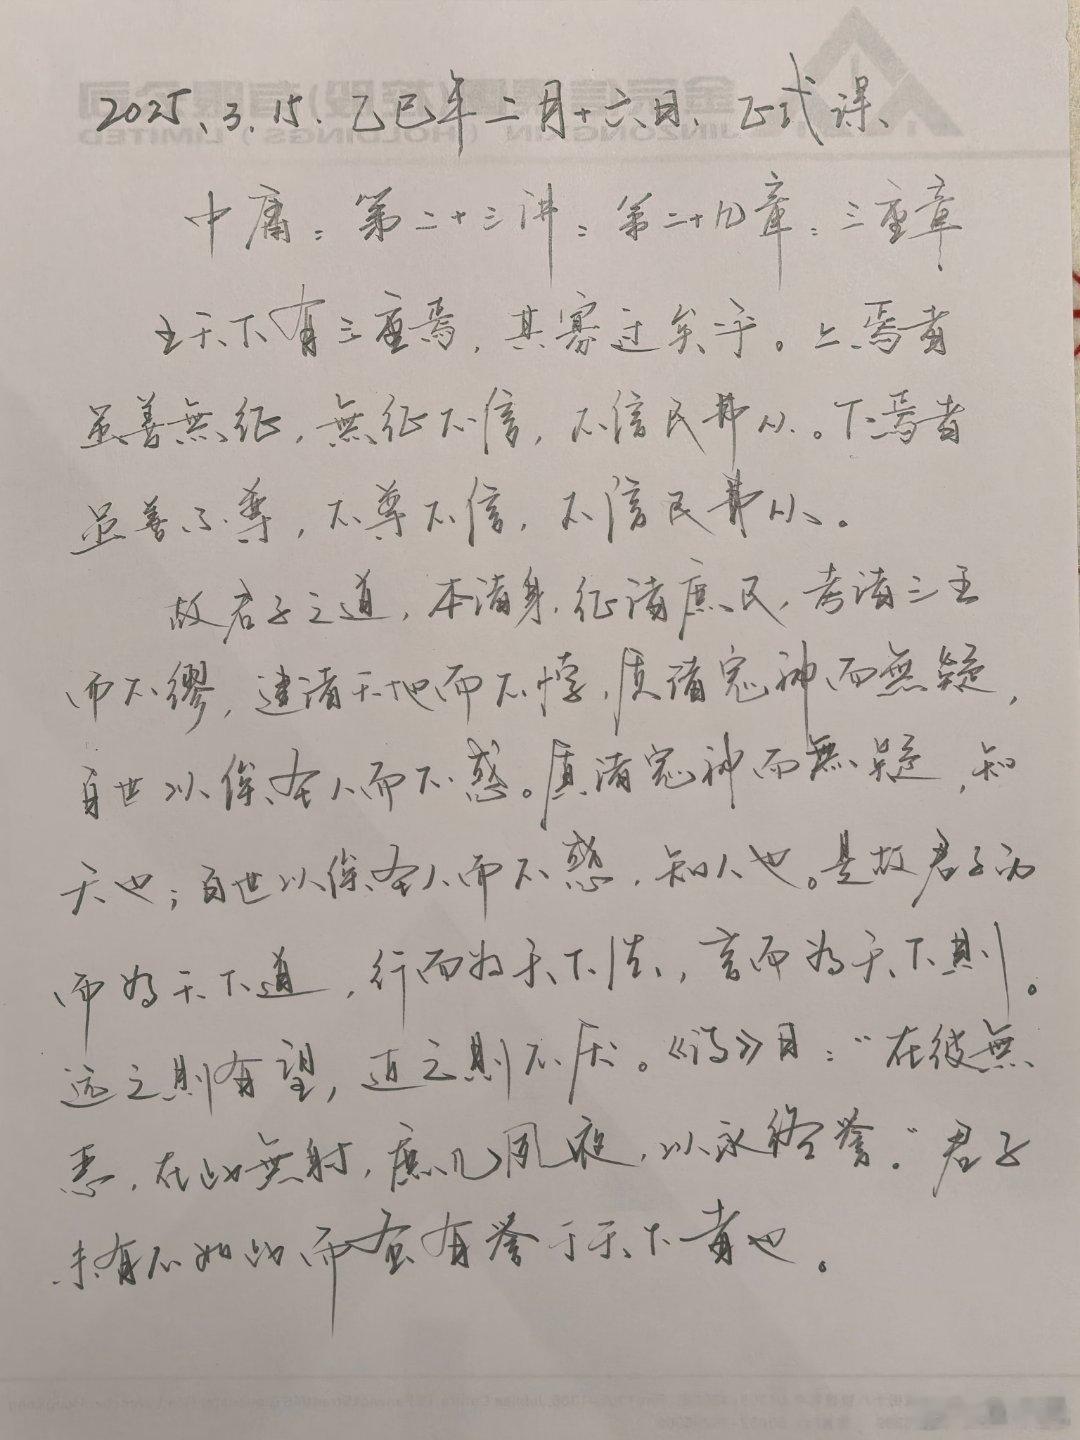 2025.3.15.乙巳年二月十六日、正式课、
中庸：第二十三讲：第二十九章：三重章
王天下有三重焉，其寡过矣乎。上焉者
虽善無征，無征不信，不信民弗从。下焉者
虽善不尊，不尊不信，不信民弗从。
故君子之道，本诸身，征诸庶民，考诸三王
而不缪，建诸天地而不悖，质诸鬼神而無疑，
百世以俟圣人而不惑。质诸鬼神而無疑，知
天也；百世以俟圣人而不惑，知人也。是故君子动
而为天下道，行而为天下法，言而为天下則。
远之則有望，近之則不厌。《诗》曰：“在彼無
恶，在此無射，庶几夙夜，以永终誉。”君子
未有不如此而蚤有誉于天下者也。
金宗信集團(控股)有限公司
JINZONGXIN (HOLDINGS) LIMITED